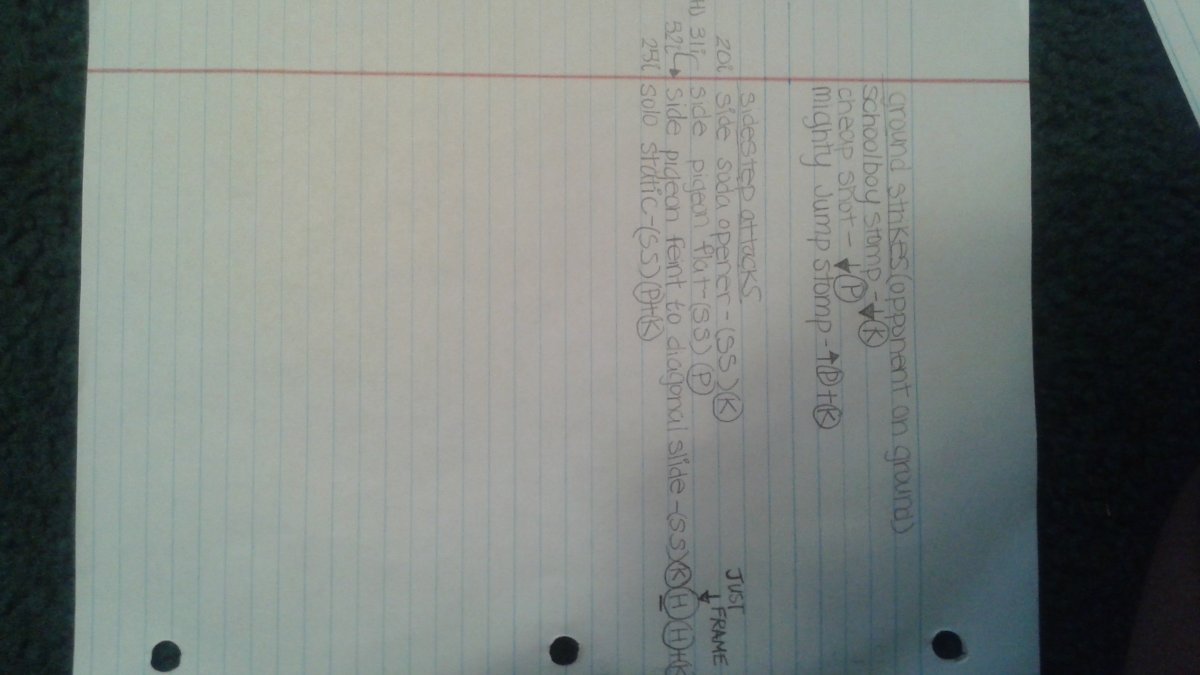 ground strikes (opponent on ground)
schoolboy stomp - ↓ (K)
cheap shot - ↓ (P)
mighty jump stomp - ↑ (P)+(K)
sidestep attacks
20i side soda opener - (SS) (K)
31i side pigeon flat - (SS) (P)
52i side pigeon feint to diagonal slide - (SS) (K) (H) (H)+(K)
JUST FRAME
25i solo static - (SS) (P)+(K)